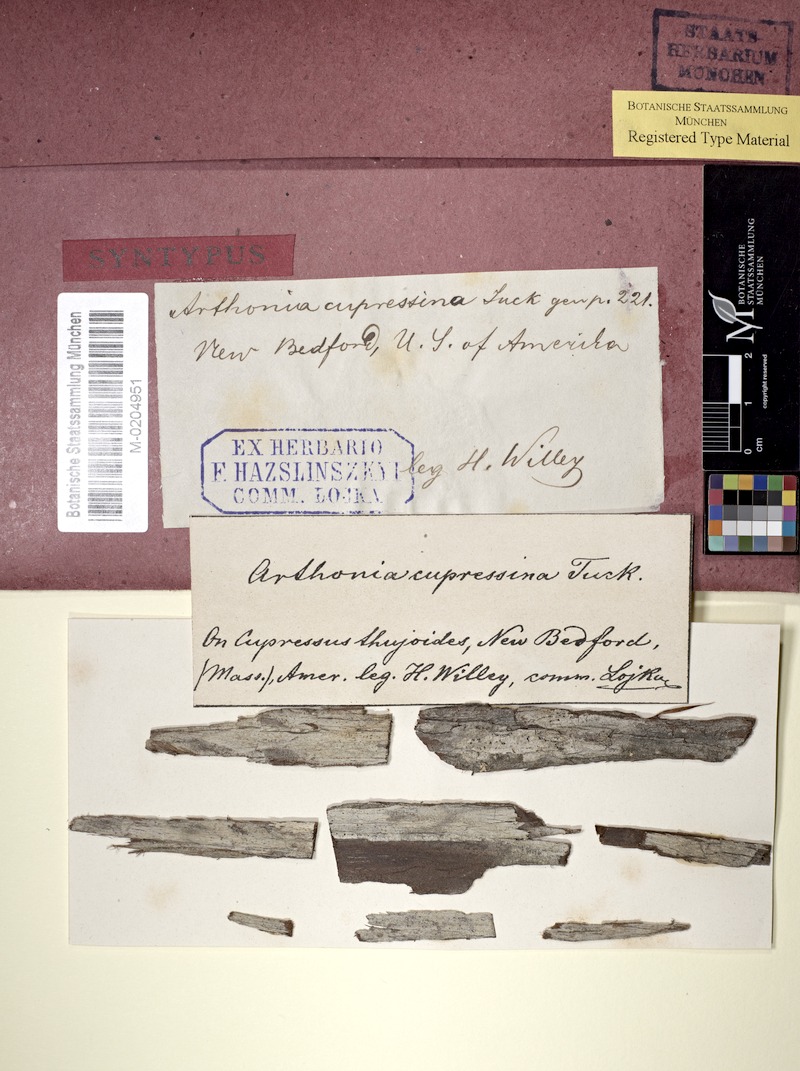 STAATS
HERBARIUM
MÜNCHEN
BOTANISCHE STAATSSAMMLUNG
MÜNCHEN
Registered Type Material
SYNTYPUS
Botanische Staatssammlung München
M-0204951
Arthonia cupressina Tuck gen p. 221.
New Bedford, U. S. of Amerika
EX HERBARIO
F. HAZSLINSZKY
COMM. LOJKA
leg H. Willey
Arthonia cupressina Tuck.
On Cupressus thujoides, New Bedford,
(Mass.), Amer. leg. H. Willey, comm. Lojka
BOTANISCHE
STAATSSAMMLUNG
MÜNCHEN
0 1 2
cm
copyright reserved